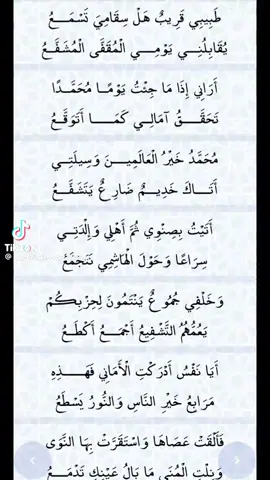 طَبِيبِي قَرِيبٌ هَلْ سِقَامِيَ تَسْمَـــعُ
يُقَابِلُنِـــي يَوْمِـــي الْمُقَفَّى الْمُشَفَّـعُ
أَرَانِي إِذَا مَا جِئْتُ يَوْمًـا مُحَمَّـدًا
تَحَقَّـــقُ آمَالِـي كَمَـــا أَتَوَقَّـــعُ
مُحَمَّدُ خَيْرُ الْعَالَمِيـــنَ وَسِيلَتِـي
أَتَـــاكَ خَدِيـــمٌ ضَارِعٌ يَتَشَفَّـــعُ
أَتَيْتُ بِصِنْوِي ثُمَّ أَهْلِي وَإِلْدَتِــي
سِرَاعًا وَحَوْلَ الْهَاشِمِي نَتَجَمَّعُ
وَخَلْفِي جُمُوعٌ يَنْتَمُونَ لِحِزْبِكُـمْ
يَعُمُّهُمُ التَّشْفِيعُ أَجْمَـــعُ أَكْطَـــعُ
أَيَا نَفْسُ أَدْرَكْتِ الْأَمَانِي فَهَـــذِهِ
مَرَابِعُ خَيْرِ النَّاسِ وَالنُّورُ يَسْطَعُ
فَأَلْقَتْ عَصَاهَا وَاسْتَقَرَّتْ بِهَا النَّوَى
وَنِلْتِ الْمُنَى مَا بَالُ عَيْنِكِ تَدْمَـــعُ